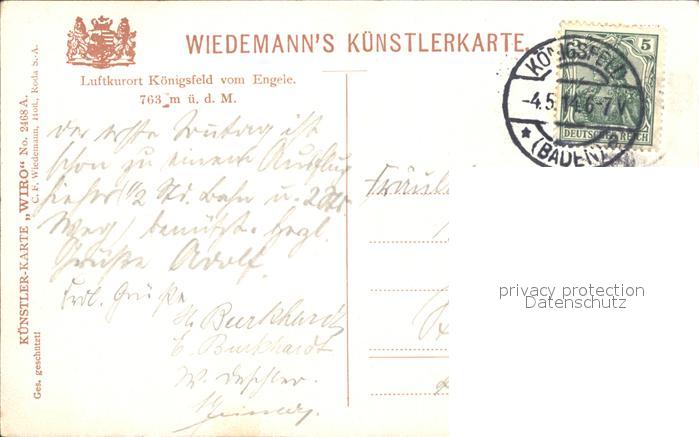 WIEDEMANN'S KÜNSTLERKARTE.
Luftkurort Königsfeld vom Engele.
763 m ü. d. M.
KÖNIGSFELD
-4.5.14.6-7.V
* (BADEN)
5
DEUTSCHES REICH
der erste Sonntag ist
schon zu einem Ausflug
hieher (1/2 Std. Bahn u. 2 Std.
Weg) benützt. herzl.
Grüße Adolf.
Frdl. Grüße
H. Burkhardt
E. Burkhardt
W. Deschler
Fräul
privacy protection
Datenschutz
KÜNSTLER-KARTE „WIRO" No. 2468 A.
C. F. Wiedemann, Hofl., Roda S.-A.
Ges. geschützt!